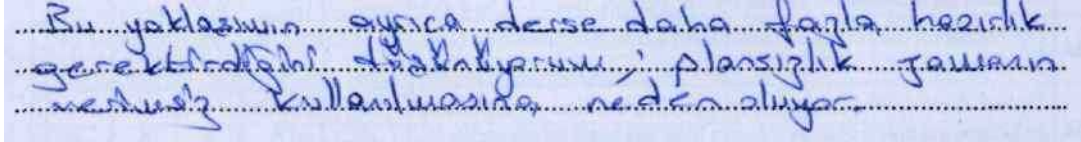 Bu yaklaşımın ayrıca derse daha fazla hazırlık
gerektirdiğini düşünüyorum; plansızlık zamanın
verimsiz kullanılmasına neden oluyor.